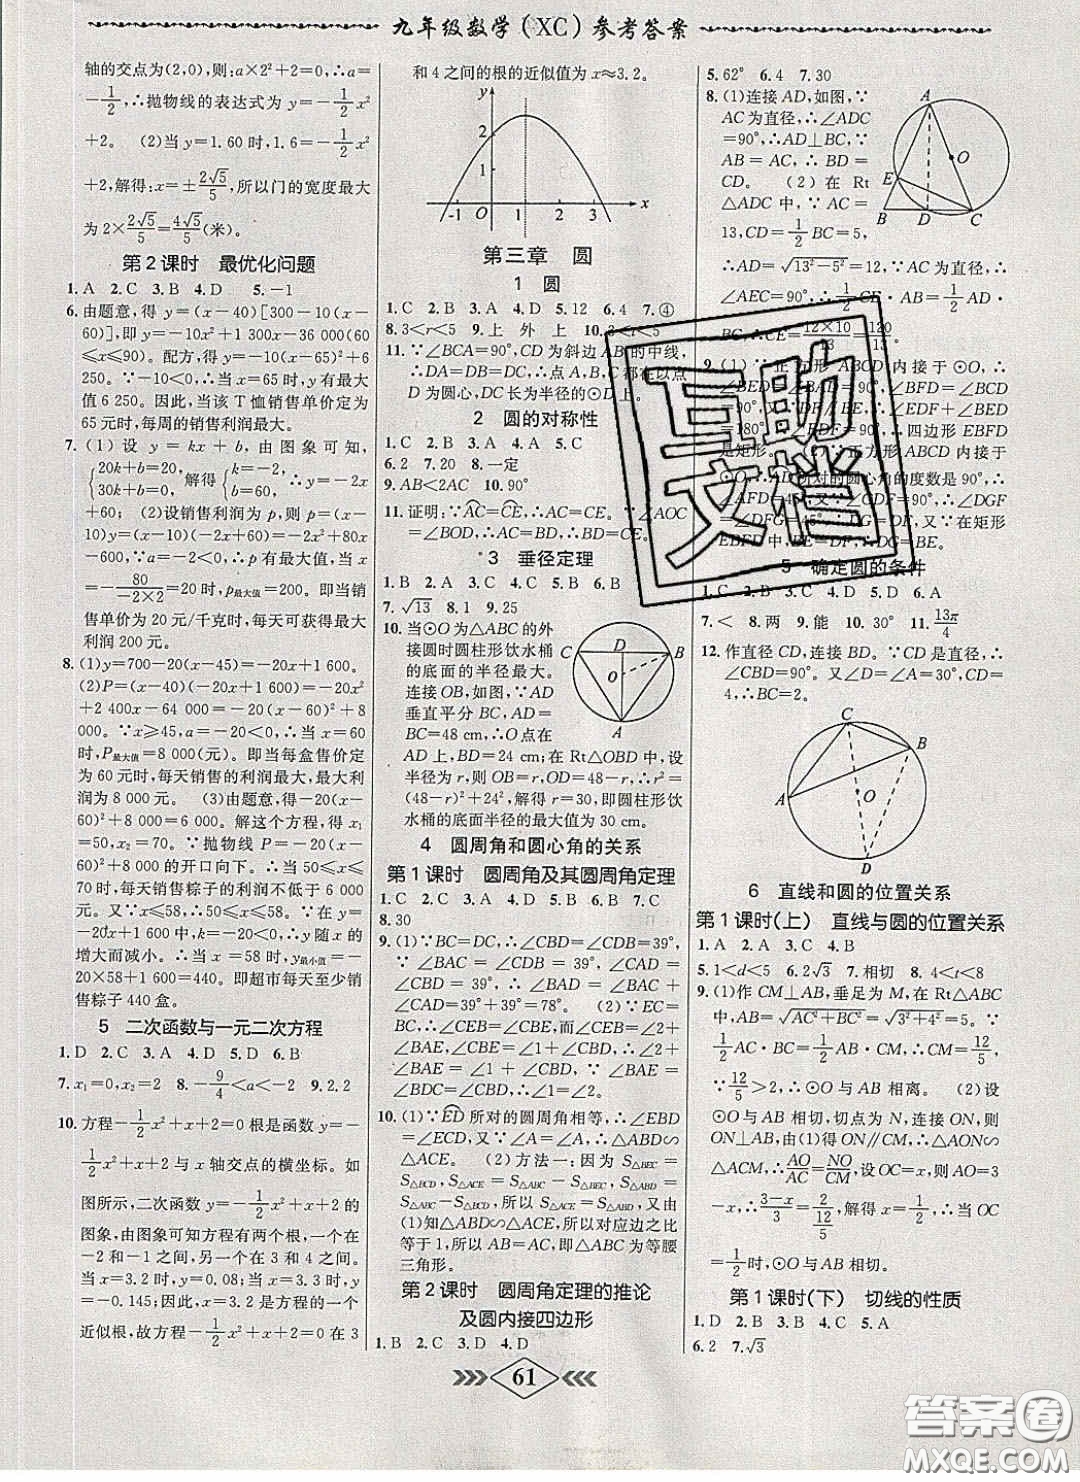 九年级数学(XC)参考答案
轴的交点为(2,0),则:a×2²+2=0,∴a=
-1/2,∴抛物线的表达式为 y=-1/2x²
+2。 (2)当 y=1.60 时,1.6=-1/2x²
+2,解得:x=±2√5/5,所以门的宽度最大
为 2×2√5/5=4√5/5(米)。
第2课时 最优化问题
1.A 2.C 3.B 4.D 5.-1
6.由题意,得 y=(x-40)[300-10(x-
60)],即 y=-10x²+1 300x-36 000(60
≤x≤90)。配方,得 y=-10(x-65)²+6
250。∵-10<0,∴当 x=65 时,y 有最大
值 6 250。因此,当该 T 恤销售单价定为
65 元时,每周的销售利润最大。
7.(1)设 y=kx+b,由图象可知,
{20k+b=20, 30k+b=0, 解得{k=-2, b=60。 ∴y=-2x
+60;(2)设销售利润为 p,则 p=(x-
10)y=(x-10)(-2x+60)=-2x²+80x
-600,∵a=-2<0,∴p 有最大值。当 x
=-80/(-2×2)=20 时,p最大值=200。即当销
售单价为 20 元/千克时,每天可获得最大
利润 200 元。
8.(1)y=700-20(x-45)=-20x+1 600。
(2)P=(x-40)(-20x+1 600)=-20x²
+2 400x-64 000=-20(x-60)²+8
000。∵x≥45,a=-20<0,∴当 x=60
时,P最大值=8 000(元)。即当每盒售价定
为 60 元时,每天销售的利润最大,最大利
润为 8 000 元。 (3)由题意,得-20(x-
60)²+8 000=6 000。解这个方程,得 x₁
=50,x₂=70。∵抛物线 P=-20(x-
60)²+8 000 的开口向下。∴当 50≤x≤
70 时,每天销售粽子的利润不低于 6 000
元。又∵x≤58,∴50≤x≤58。∵在 y=
-20x+1 600 中,k=-20<0,∴y 随 x 的
增大而减小。∴当 x=58 时,y最小值=-
20×58+1 600=440。即超市每天至少销
售粽子 440 盒。
5 二次函数与一元二次方程
1.D 2.C 3.A 4.D 5.D 6.B
7.x₁=0,x₂=2 8.-9/4<a<-2 9.2.2
10.方程-1/2x²+x+2=0 根是函数 y=-
1/2x²+x+2 与 x 轴交点的横坐标。如
图所示,二次函数 y=-1/2x²+x+2 的
图象,由图象可知方程有两个根,一个在
-2 和-1 之间,另一个在 3 和 4 之间。
当 x=3.2 时,y=0.08;当 x=3.3 时,y
=-0.145;因此,x=3.2 是方程的一个
近似根,故方程-1/2x²+x+2=0 在 3
和 4 之间的根的近似值为 x≈3.2。
y
2
1
-1 O 1 2 3 x
第三章 圆
1 圆
1.C 2.B 3.A 4.D 5.12 6.4 7.④
8.3<r<5 9.上 外 上 10.3<r<5
11.∵∠BCA=90°,CD 为斜边 AB 的中线,
∴DA=DB=DC,∴点 A,B,C 都在以点
D 为圆心,DC 长为半径的⊙D 上。
2 圆的对称性
1.C 2.B 3.A 4.A 5.C
6.2 7.20 8.一定
9.AB<2AC 10.90°
11.证明:∵AC=CE,∴AC=CE。∵∠AOC
=∠BOD,∴AC=BD,∴BD=CE。
3 垂径定理
1.B 2.A 3.C 4.C 5.B 6.B
7.√13 8.1 9.25
10.当⊙O 为△ABC 的外
接圆时圆柱形饮水桶
的底面的半径最大。
连接 OB,如图,∵AD
垂直平分 BC,AD=
BC=48 cm,∴O点在
AD 上,BD=24 cm;在 Rt△OBD 中,设
半径为 r,则 OB=r,OD=48-r,∴r²=
(48-r)²+24²,解得 r=30,即圆柱形饮
水桶的底面半径的最大值为 30 cm。
C D B
O
A
4 圆周角和圆心角的关系
第1课时 圆周角及其圆周角定理
1.A 2.C 3.D 4.B 5.C 6.B 7.B
8.30
9.(1)∵BC=DC,∴∠CBD=∠CDB=39°,
∵∠BAC=∠CDB=39°,∠CAD=
∠CBD=39°,∴∠BAD=∠BAC+
∠CAD=39°+39°=78°。 (2)∵EC=
BC,∴∠CBE=∠CEB,而∠CEB=∠2+
∠BAE,∠CBE=∠1+∠CBD,∴∠2+
∠BAE=∠1+∠CBD,∵∠BAE=
∠BDC=∠CBD,∴∠1=∠2。
10.(1)∵ED所对的圆周角相等,∴∠EBD
=∠ECD,又∵∠A=∠A,∴△ABD∽
△ACE。 (2)方法一:因为 S△BEC=
S△BCD,S△ACE=S△ABC-S△BEC,S△ABD=
S△ABC-S△BCD,所以 S△ACE=S△ABD,又由
(1)知△ABD∽△ACE,所以对应边之比
等于 1,所以 AB=AC,即△ABC 为等腰
三角形。
第2课时 圆周角定理的推论
及圆内接四边形
1.B 2.C 3.D 4.D
5.62° 6.4 7.30
8.(1)连接 AD,如图,∵
AC 为直径,∴∠ADC
=90°,∴AD⊥BC,∵
AB=AC,∴BD=
CD。 (2)在 Rt
△ADC 中,∵AC=
13,CD=1/2BC=5,
∴AD=√(13²-5²)=12,∵AC 为直径,∴
∠AEC=90°,∴1/2CE·AB=1/2AD·
BC,∴CE=12×10/13=120/13
A
E O
B D C
9.(1)∵正方形 ABCD 内接于⊙O,∴
∠BED=∠BAD=90°,∠BFD=∠BCD
=90°,∴∠EDF+∠BED
=180°,∴∠EDF=90°,∴四边形 EBFD
是矩形。 (2)∵正方形 ABCD 内接于
⊙O,∴所对的圆心角的度数是 90°,∴
∠DGF
=∠DFG=45°,又∵在矩形
EBFD 中,∴DG=BE。
5 确定圆的条件
1.C 2.B 3.C 4.D 5.D 6.A
7.< 8.两 9.能 10.30° 11.13π/4
12.作直径 CD,连接 BD。∵CD 为直径,∴
∠CBD=90°。又∵∠D=∠A=30°,CD=
4,∴BC=2。
C
B
A O
D
6 直线和圆的位置关系
第1课时(上) 直线与圆的位置关系
1.A 2.A 3.C 4.B
5.1<d<5 6.2√3 7.相切 8.4<t<8
9.(1)作 CM⊥AB,垂足为 M,在 Rt△ABC
中,AB=√(AC²+BC²)=√(3²+4²)=5。∵
1/2AC·BC=1/2AB·CM,∴CM=12/5,
∵12/5>2,∴⊙O 与 AB 相离。 (2)设
⊙O 与 AB 相切,切点为 N,连接 ON,则
ON⊥AB,∴ON∥CM,∴△AON∽
△ACM,∴AO/AC=NO/CM,设 OC=x,则 AO=3
-x,∴(3-x)/3=2/(12/5),∴x=1/2,∴当 OC
=1/2时,⊙O 与 AB 相切。
第1课时(下) 切线的性质
1.B 2.D 3.A 4.C 5.A
6.2 7.√3
61
互助
文档
答案圈
MXQE.COM